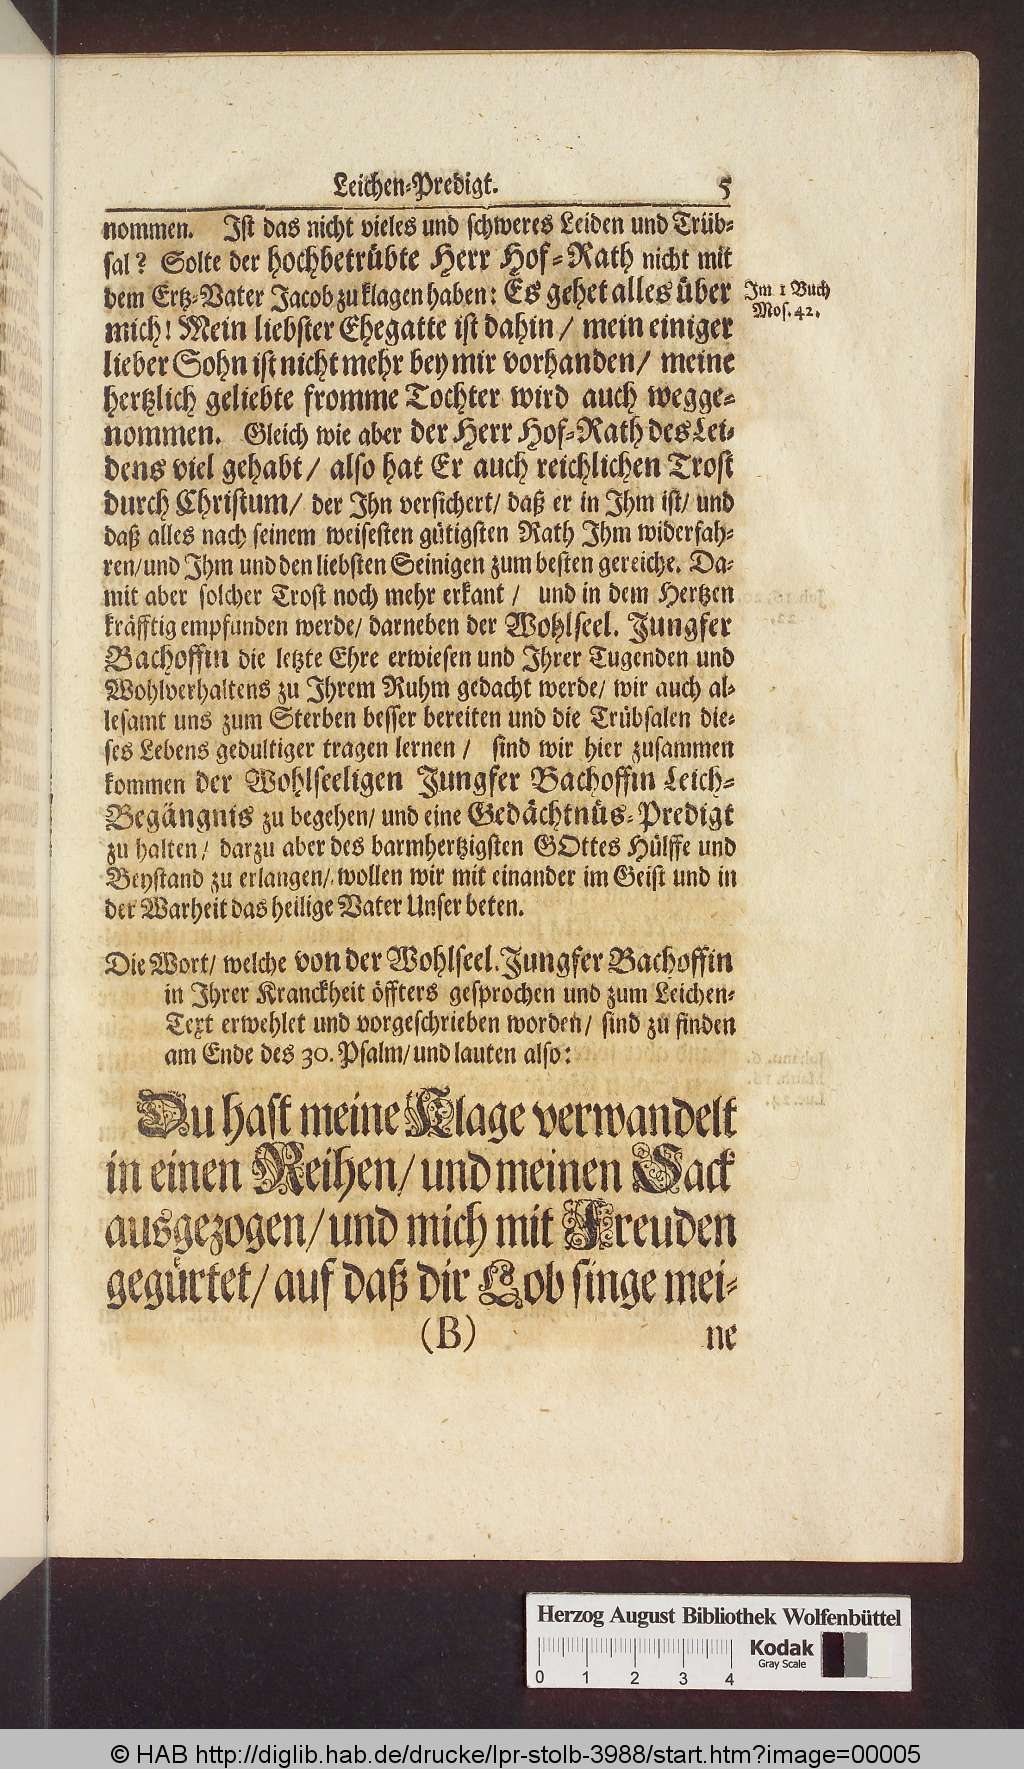 Leichen-Predigt. 5
nommen. Ist das nicht vieles und schweres Leiden und Trüb-
sal? Solte der hochbetrübte Herr Hof-Rath nicht mit
dem Ertz-Vater Jacob zu klagen haben: Es gehet alles über
Im 1 Buch
Mos. 42.
mich! Mein liebster Ehegatte ist dahin / mein einiger
lieber Sohn ist nicht mehr bey mir vorhanden / meine
hertzlich geliebte fromme Tochter wird auch wegge-
nommen. Gleich wie aber der Herr Hof-Rath des Lei-
dens viel gehabt / also hat Er auch reichlichen Trost
durch Christum / der Ihn versichert / daß er in Ihm ist / und
daß alles nach seinem weisesten gütigsten Rath Ihm widerfah-
ren / und Ihm und den liebsten Seinigen zum besten gereiche. Da-
mit aber solcher Trost noch mehr erkant / und in dem Hertzen
kräfftig empfunden werde / darneben der Wohlseel. Jungfer
Bachoffin die letzte Ehre erwiesen und Ihrer Tugenden und
Wohlverhaltens zu Ihrem Ruhm gedacht werde / wir auch al-
lesamt uns zum Sterben besser bereiten und die Trübsalen die-
ses Lebens gedultiger tragen lernen / sind wir hier zusammen
kommen der Wohlseeligen Jungfer Bachoffin Leich-
Begängnis zu begehen / und eine Gedächtnüs-Predigt
zu halten / darzu aber des barmhertzigsten GOttes Hülffe und
Beystand zu erlangen / wollen wir mit einander im Geist und in
der Warheit das heilige Vater Unser beten.
Die Wort / welche von der Wohlseel. Jungfer Bachoffin
in Ihrer Kranckheit öffters gesprochen und zum Leichen-
Text erwehlet und vorgeschrieben worden / sind zu finden
am Ende des 30. Psalm / und lauten also:
Du hast meine Klage verwandelt
in einen Reihen / und meinen Sack
ausgezogen / und mich mit Freuden
gegürtet / auf daß dir Lob singe mei-
(B) ne
Herzog August Bibliothek Wolfenbüttel
Kodak
Gray Scale
0 1 2 3 4
© HAB http://diglib.hab.de/drucke/lpr-stolb-3988/start.htm?image=00005